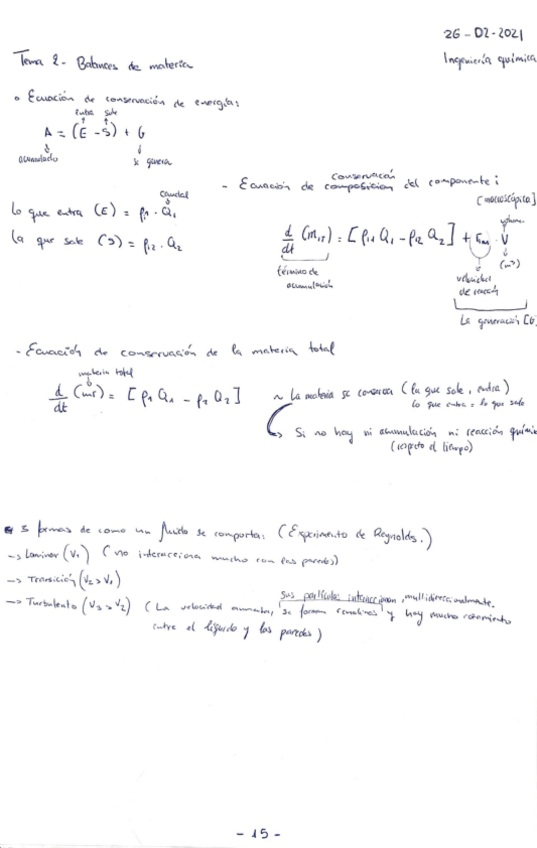 26-02-2021
Tema 2 - Balances de materia
Ingeniería química
• Ecuación de conservación de energía:
entra sale
A = (E - S) + G
acumulado
se genera
conservación
- Ecuación de composición del componente i
[macroscópico]
caudal
lo que entra (E) = ρ₁ · Q₁
lo que sale (S) = ρ₁₂ · Q₂
volumen
d/dt (m) = [ρ₁₁ Q₁ - ρ₁₂ Q₂] + · V
(m³)
término de acumulación
velocidad de reacción
La generación [G
- Ecuación de conservación de la materia total
materia total
d/dt (m) = [ρ₁ Q₁ - ρ₂ Q₂]
~ La materia se conserva (lo que sale, entra)
lo que entra = lo que sale
→ Si no hay ni acumulación ni reacción químic
(respecto el tiempo)
3 formas de como un fluido se comporta: (Experimento de Reynolds.)
-> Laminar (V₁) (no interacciona mucho con las paredes)
-> Transición (V₂ > V₁)
sus partículas interaccionan, multidireccionalmente.
-> Turbulento (V₃ > V₂) (La velocidad aumenta, se forman remolinos y hay mucho rozamiento
entre el líquido y las paredes)
- 15 -